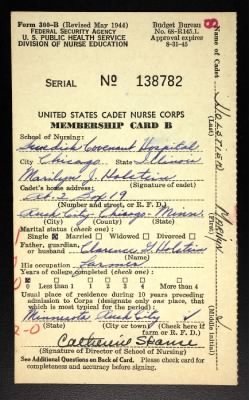 Form 300-B (Revised May 1944)
FEDERAL SECURITY AGENCY
U. S. PUBLIC HEALTH SERVICE
DIVISION OF NURSE EDUCATION
Budget Bureau
No. 68-R145.1.
Approval expires
8-31-45
SERIAL No 138782
UNITED STATES CADET NURSE CORPS
MEMBERSHIP CARD B
School of Nursing:
Swedish Covenant Hospital
City Chicago State Illinois
Marilyn J. Holstein
Cadet's home address: (Signature of cadet)
Rt. 2 Box 19
(Number and street, or R. F. D.)
Rush City Chicago Minn.
Marital status (check one):
Single Married Widowed Divorced
Father, guardian,
or husband Clarence G. Holstein
His occupation Farmer
Years of college completed (check one):
0 Less than 1 1 2 3 4 More than 4
Usual place of residence during 10 years preceding
admission to Corps (designate only one place, that
which is most typical for the period):
Minnesota Rush City
(State) (City or town) (Check here if
farm or R. F. D.)
Catherine
(Signature of Director of School of Nursing)
See Additional Questions on Back of Card. Please check card for
completeness and accuracy before signing.
Name of Cadet Holstein Marilyn J
(Last) (First) (Middle initial)
8
2-0